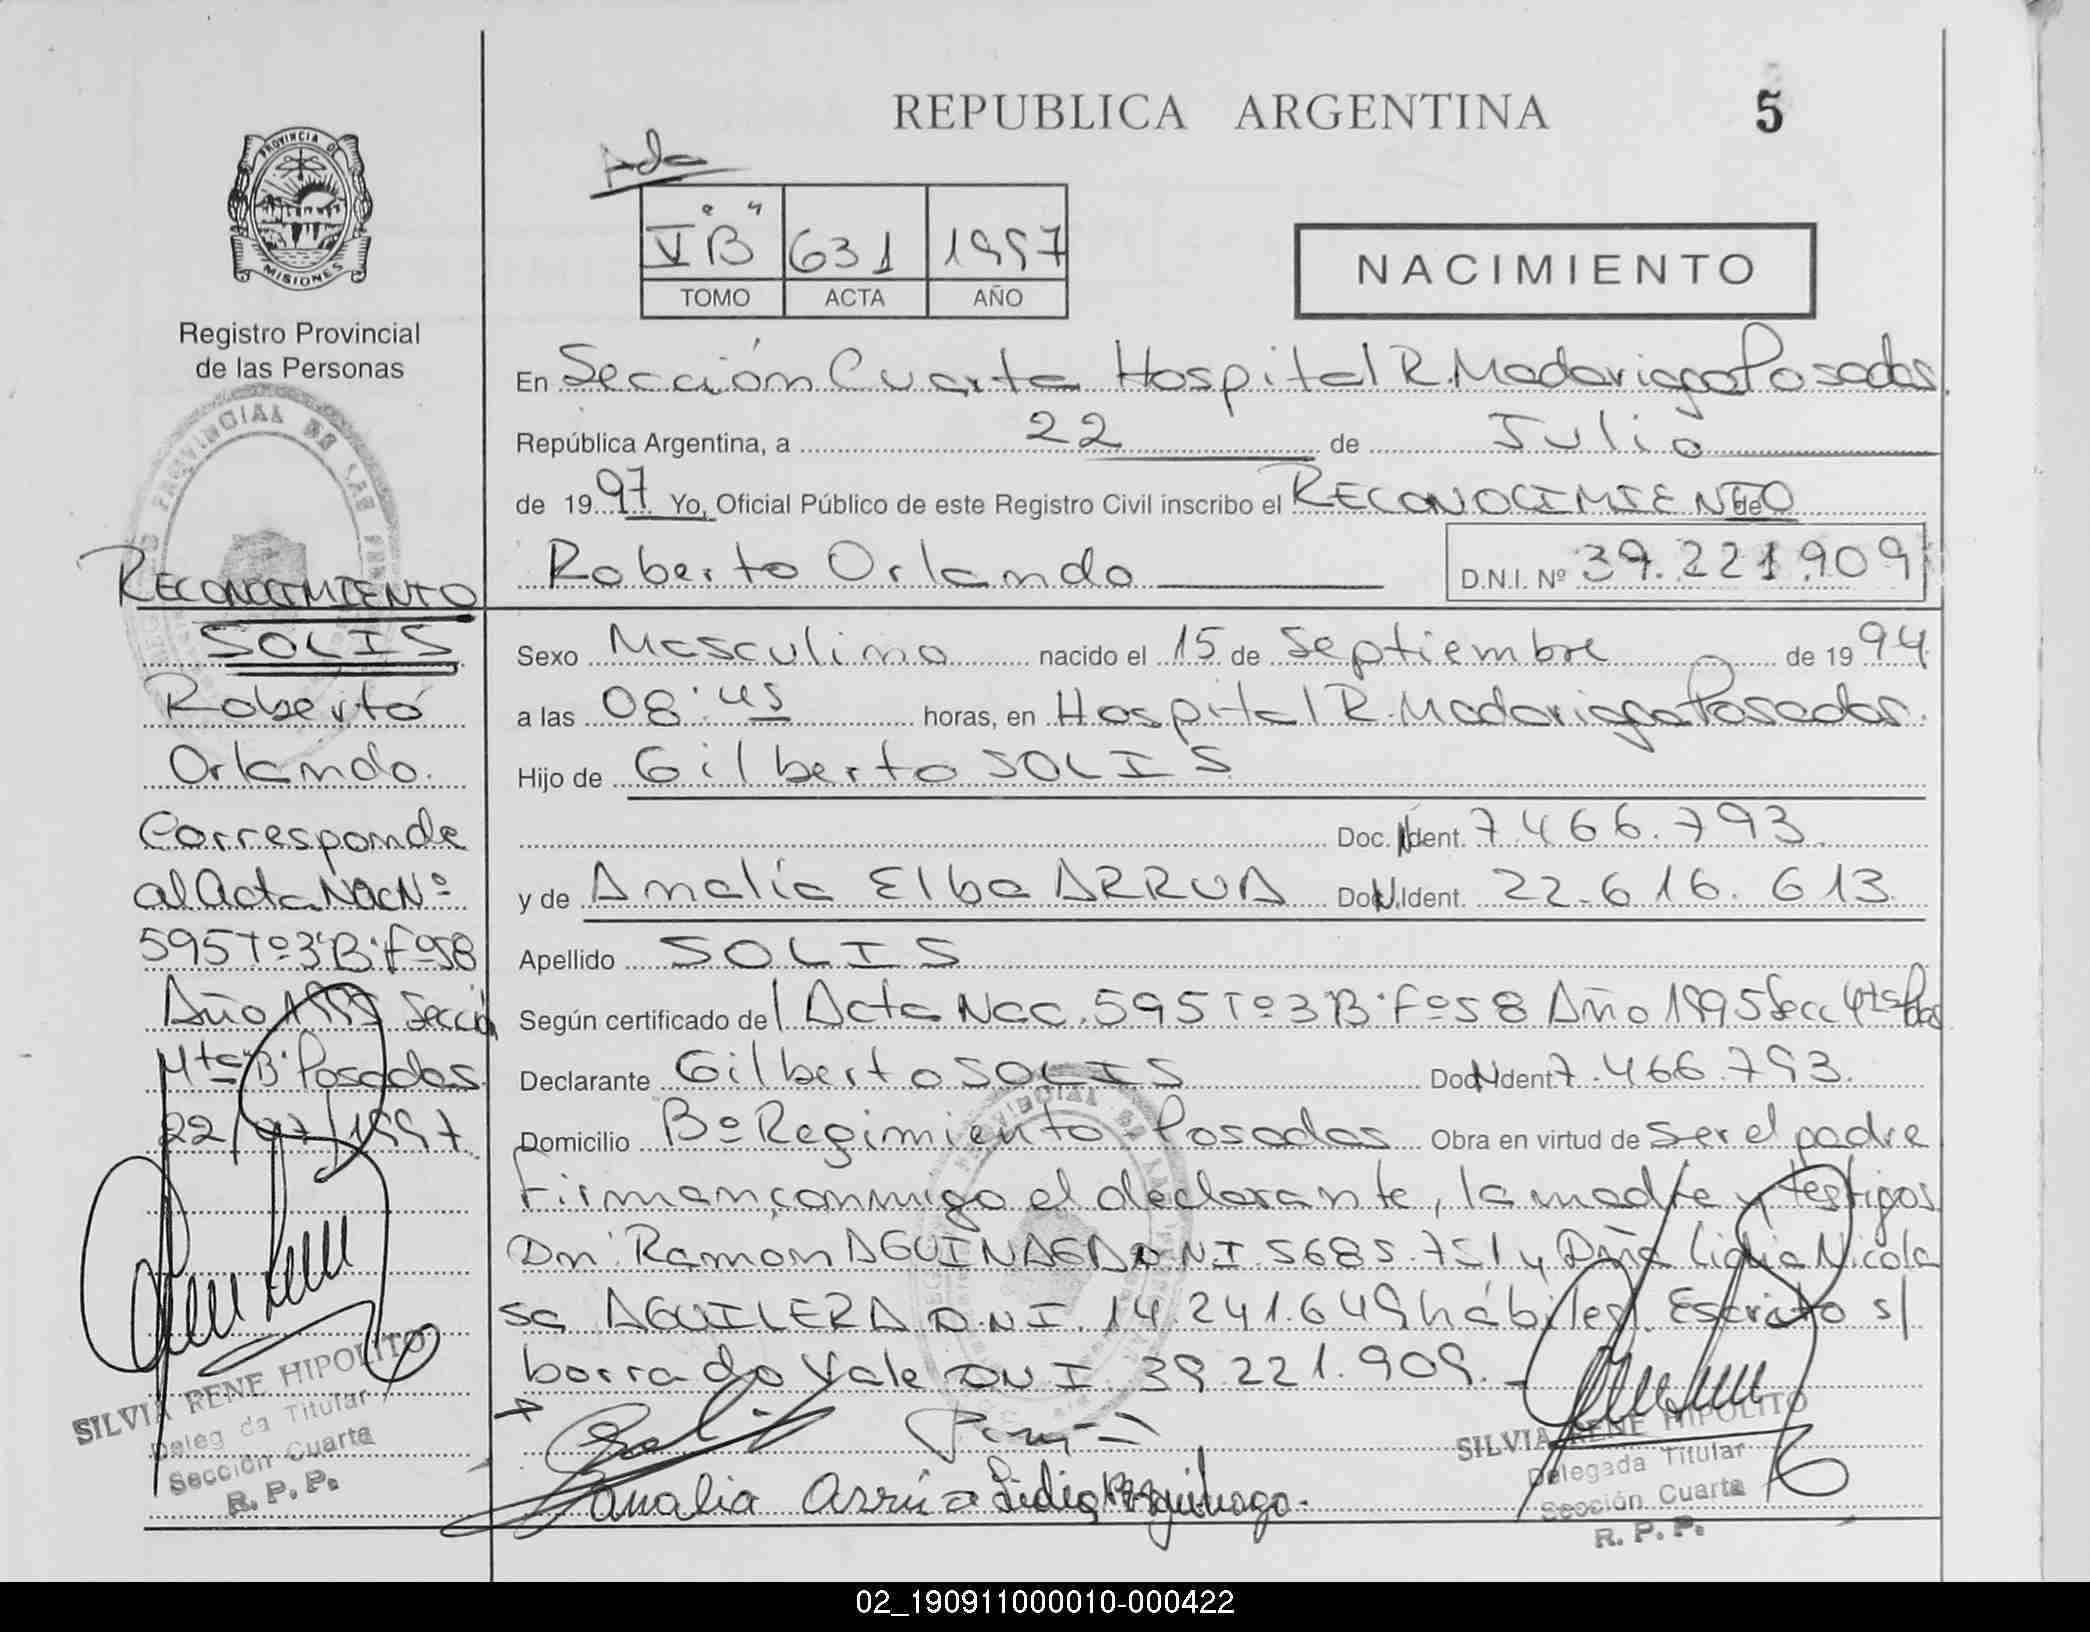 REPUBLICA ARGENTINA
5
PROVINCIA DE
MISIONES
Registro Provincial
de las Personas
V "B" 631 1997
TOMO ACTA AÑO
NACIMIENTO
En Sección Cuarta Hospital R. Madariaga Posadas
República Argentina, a 22 de Julio
de 1997 Yo, Oficial Público de este Registro Civil inscribo el RECONOCIMIENTO de
Roberto Orlando D.N.I. Nº 39.221.909
Sexo Masculino nacido el 15 de Septiembre de 1994
a las 08:45 horas, en Hospital R. Madariaga Posadas.
Hijo de Gilberto SOLIS
Doc. N. Ident. 7.466.793.
y de Amalia Elba ARRUA Doc. N. Ident. 22.616.613.
Apellido SOLIS
Según certificado del Acta Nac. 595 Tº 3 "B" Fº 58 Año 1995 Secc 4ta Pdas
Declarante Gilberto SOLIS Doc. N. Ident 7.466.793.
Domicilio Bº Regimiento Posadas Obra en virtud de ser el padre
Firman conmigo el declarante, la madre y testigos
Dn. Ramón AGUINAGA D.N.I. 5685.751 y Dña Lidia Nicola
sa AGUILERA D.N.I. 14.241.649 hábiles. Escrito s/
borrado Vale DNI 39.221.909.
Amalia Arrúa
SILVIA RENE HIPOLITO
Delegada Titular
Sección Cuarta
R. P. P.
RECONOCIMIENTO
SOLIS
Roberto
Orlando.
Corresponde
al Acta Nac Nº
595 Tº 3 "B" Fº 58
Año 1995 Sección
4ta "B" Posadas
22/07/1997.
SILVIA RENE HIPOLITO
Delegada Titular
Sección Cuarta
R. P. P.
02_190911000010-000422